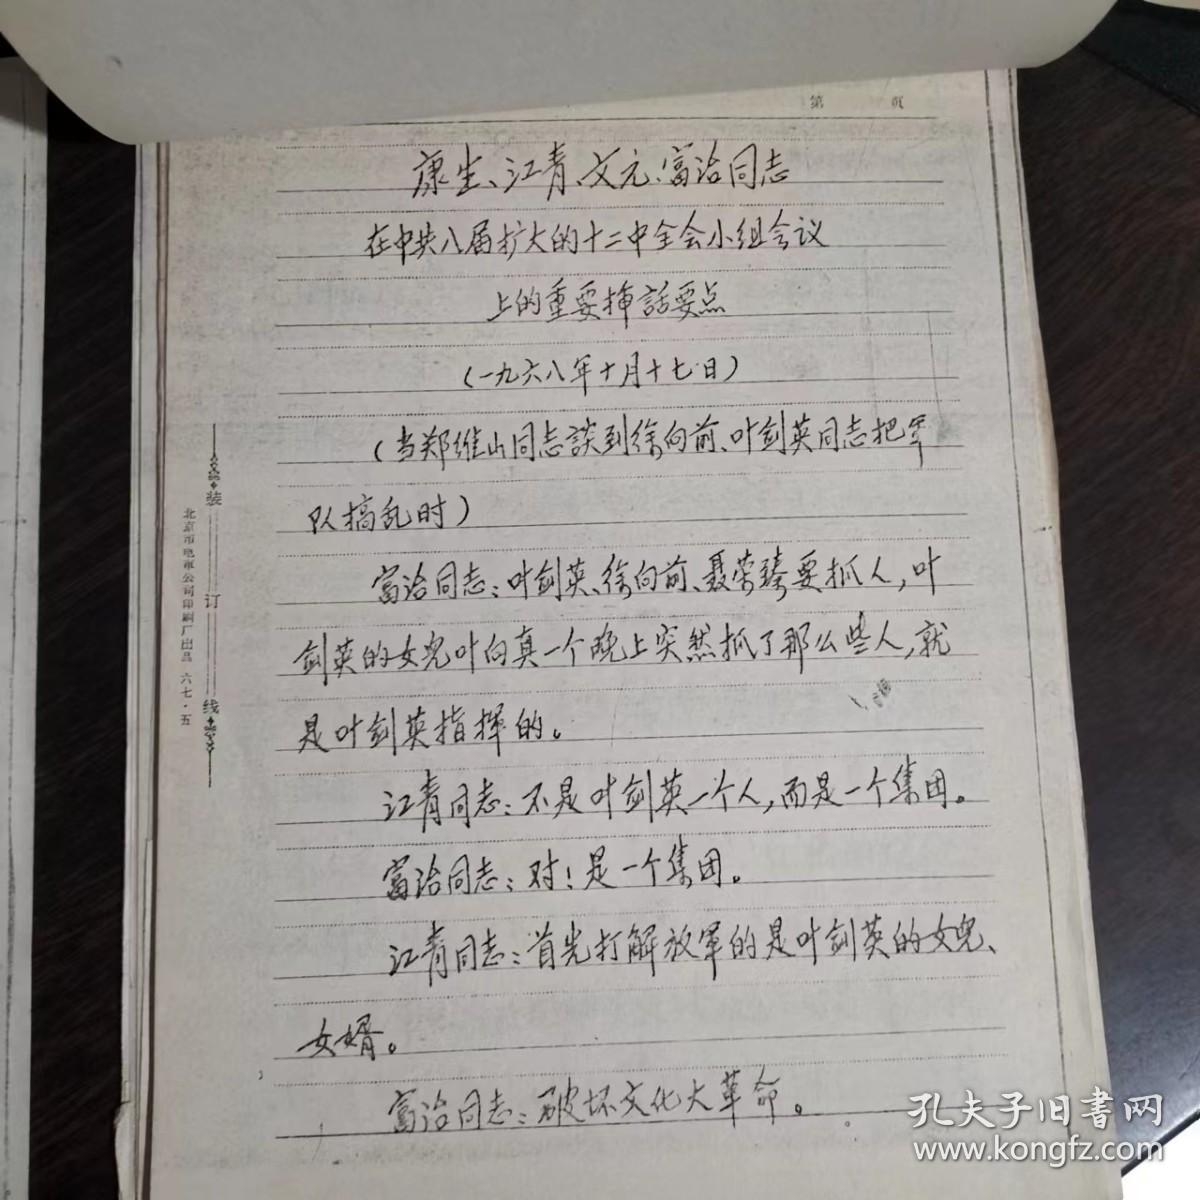 第 页
康生、江青、文元、富治同志
在中共八届扩大的十二中全会小组会议
上的重要揷話要点
(一九六八年十月十七日)
(当郑维山同志談到徐向前、叶剑英同志把军
队搞乱时)
富治同志:叶剑英、徐向前、聂荣臻要抓人,叶
剑英的女兒叶向真一个晚上突然抓了那么些人,就
是叶剑英指挥的。
江青同志:不是叶剑英一个人,而是一个集团。
富治同志:对!是一个集团。
江青同志:首先打解放军的是叶剑英的女兒、
女婿。
富治同志:破坏文化大革命。
装 订 线
北京市电車公司印刷厂出品 六七·五
孔夫子旧書网
www.kongfz.com